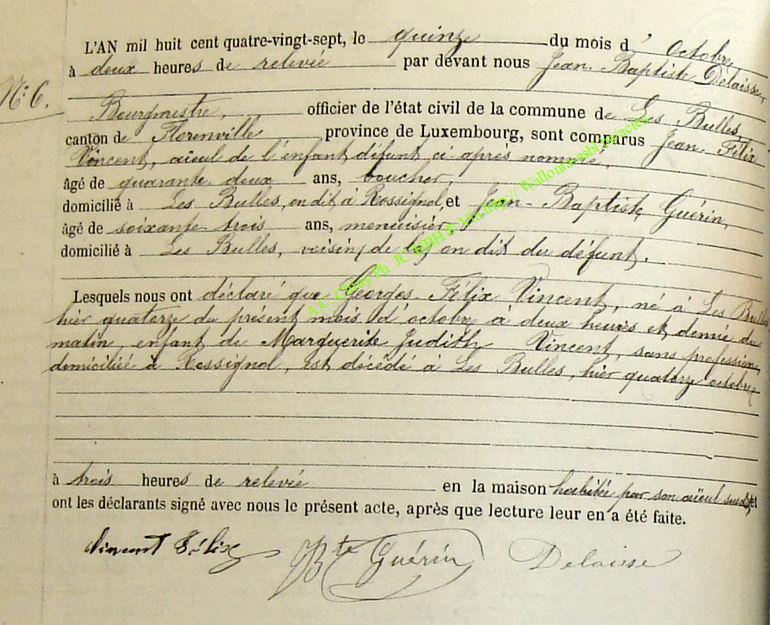 L'AN mil huit cent quatre-vingt-sept, le quinze du mois d'octobre
à deux heures de relevée par devant nous Jean-Baptiste Delaisse,
N° 6.
Bourgmestre, officier de l'état civil de la commune de Les Bulles,
canton de Florenville province de Luxembourg, sont comparus Jean Félix
Vincent, aïeul de l'enfant défunt ci après nommé,
âgé de quarante deux ans, boucher,
domicilié à Les Bulles, on dit à Rossignol, et Jean-Baptiste Guérin,
âgé de soixante-trois ans, menuisier,
domicilié à Les Bulles, voisin, on dit du défunt.
Lesquels nous ont déclaré que Georges-Félix Vincent, né à Les Bulles
hier quatorze du présent mois d'octobre à deux heures et demie du
matin, enfant de Marguerite Judith Vincent, sans profession,
domiciliée à Rossignol, est décédé à Les Bulles, hier quatorze octobre,
à trois heures de relevée en la maison habitée par son aïeul susdit, et
ont les déclarants signé avec nous le présent acte, après que lecture leur en a été faite.
Vincent Félix JBte Guérin Delaisse